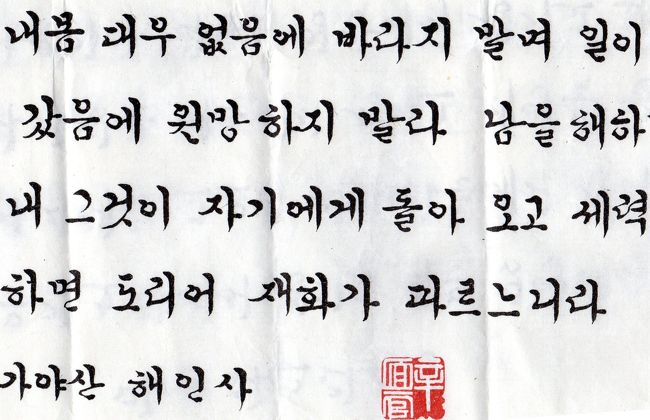 내몸 대우 없음에 바라지 말며 일이
갔음에 원망하지 말라 남을 해하
내 그것이 자기에게 돌아 오고 세력
하면 도리어 재화가 따르느니라
가야산 해인사